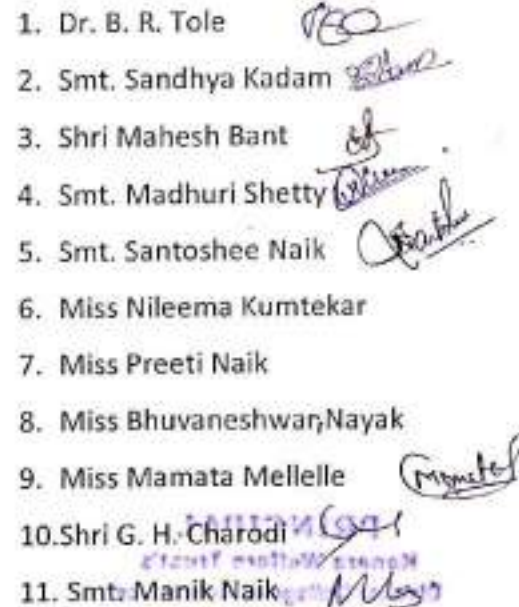 1. Dr. B. R. Tole
2. Smt. Sandhya Kadam
3. Shri Mahesh Bant
4. Smt. Madhuri Shetty
5. Smt. Santoshee Naik
6. Miss Nileema Kumtekar
7. Miss Preeti Naik
8. Miss Bhuvaneshwari Nayak
9. Miss Mamata Mellelle Mamata
10.Shri G. H. Charodi
Kanara Welfare Trust's
11. Smt. Manik Naik